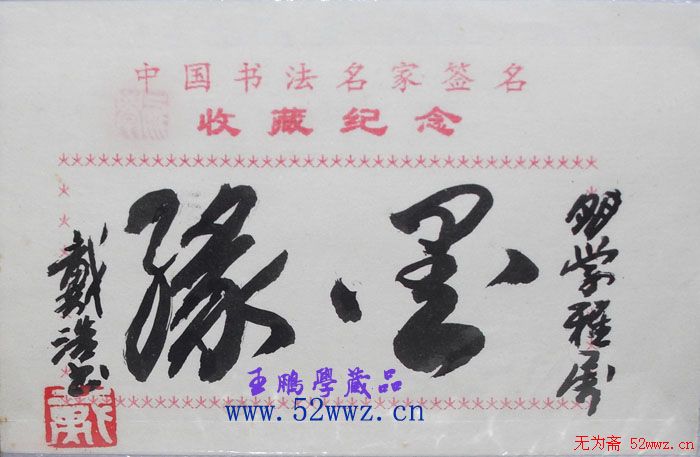 中国书法名家签名
收藏纪念
学雅属
墨缘
戴 书
戴
王鹏學藏品
www.52wwz.cn
无为斋 52wwz.cn